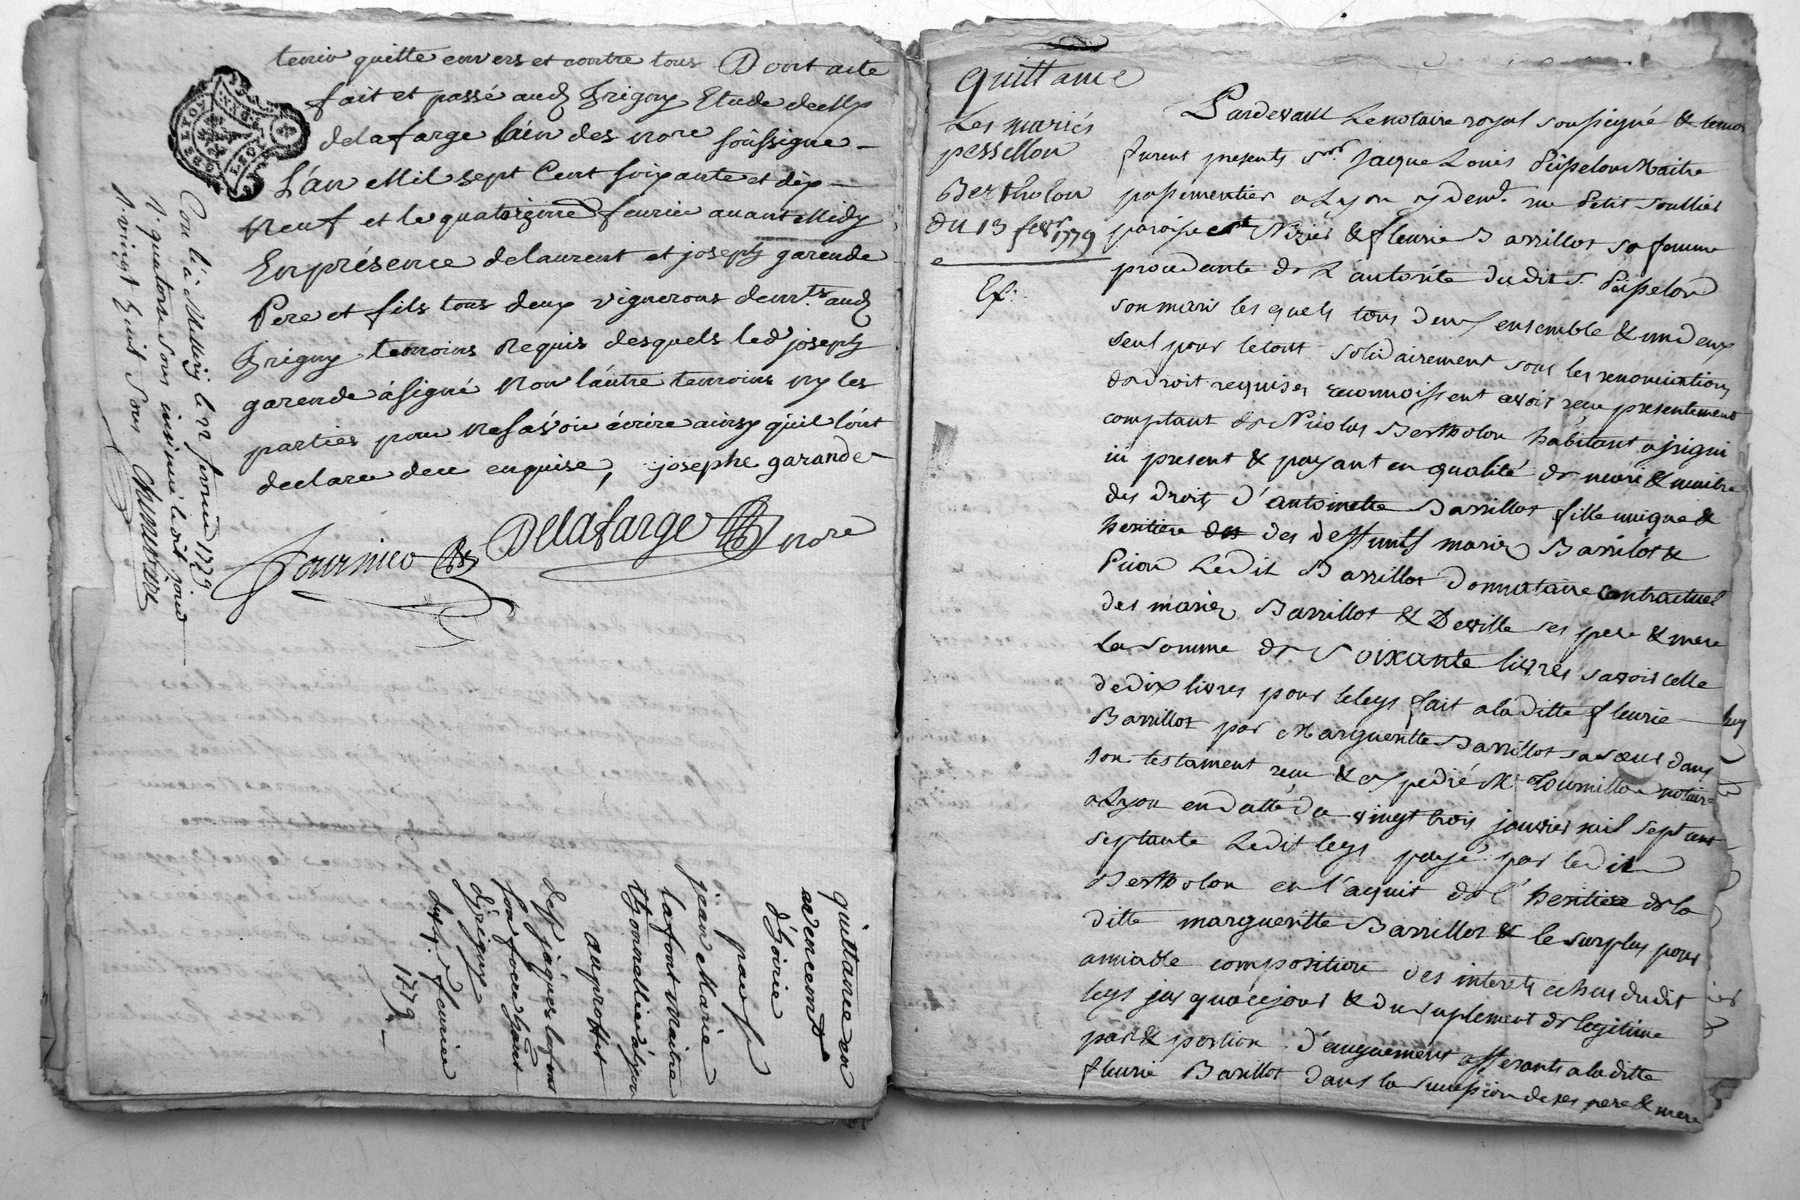 tenir quitte envers et contre tous Dont acte
fait et passé aud Irigny Etude de Me
delafarge l'un des nore soussigne
L'an Mil sept Cent soixante et dix
Neuf et le quatorzieme feurier avant Midy
En présence de laurent et joseph garende
Pere et fils tous deux vignerons demts aud
Irigny temoins Requis desquels led joseph
garende à signé Non l'autre temoins ny les
parties pour ne sàvoir écrire ainsy qu'il l'ont
declare de ce enquise, josephe garande
Fournier Delafarge nore
GEN DE LYON
Con lé à Millery le 22 feurier 1779
R. quatorze sous insinué le dit jour
R. vingt huit sous
quittance en
avencement
d'hoirie
par
jean Marie
lafont Maitre
thonnellier à lyon
au proffit
de sr jaques lafont
son frere hant
d'irigny
du feurier
1779
quittance
Les mariés
pessellon
Bertholon
du 13 fevr 1779
Ex:
Pardevant Le notaire royal soussigné & temoi
furent presents sr. Jaque Louis Peisselon Maitre
passementier a Lyon y demt. rue Petit Soullier
paroisse st Nizier & fleurie Barrillot sa femme
procedante de L'autorité dudit s. Peisselon
son mari les quels tous deux ensemble & un deux
seul pour le tout solidairement sous les renonciations
de droit requises reconnoissent avoir reçu presentement
comptant de Nicolas Bertholon habitant a jrigni
ici present & payant en qualité de mari & maitre
des droits d'antoinette Barrillot fille unique &
heritiere des deffunts maries Barrilot &
Pion Ledit Barrillot donnataire contractuel
des maries Barrillot & Deville ses pere & mere
La somme de soixante livres savoir celle
de dix livres pour le legs fait a la ditte fleurie
Barrillot par Margueritte Barrillot sa sœur dans
son testament reçu & expedié Me Tournillon notaire
a Lyon en datte de vingt trois janvier mil sept cent
septante Ledit legs payé par ledit
Bertholon en l'aquit de l'heritiere de la
ditte margueritte Barrillot & le surplus pour
amiable composition des interets echus dudit
legs jusqu'a ce jour & du suplement de legitime
part & portion d'augments afferants a la ditte
fleurie Barillot dans la succession de ses pere & mere